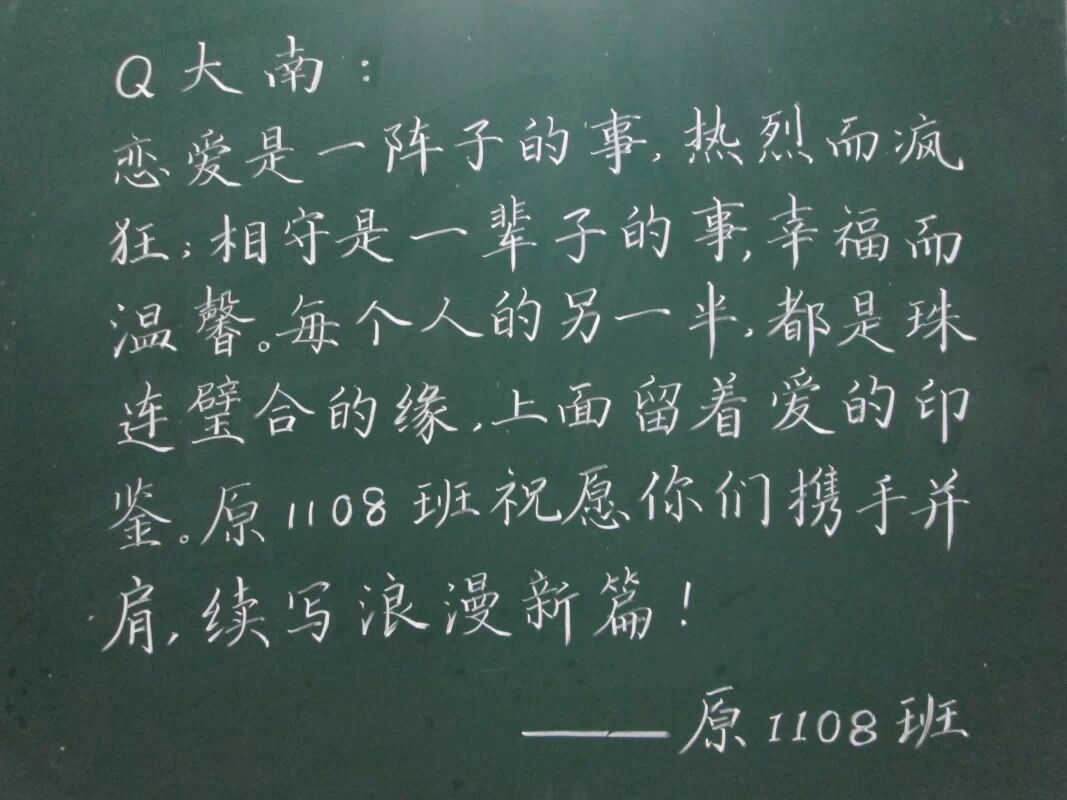 Q大南：
恋爱是一阵子的事，热烈而疯
狂；相守是一辈子的事，幸福而
温馨。每个人的另一半，都是珠
连璧合的缘，上面留着爱的印
鉴。原1108班祝愿你们携手并
肩，续写浪漫新篇！
——原1108班